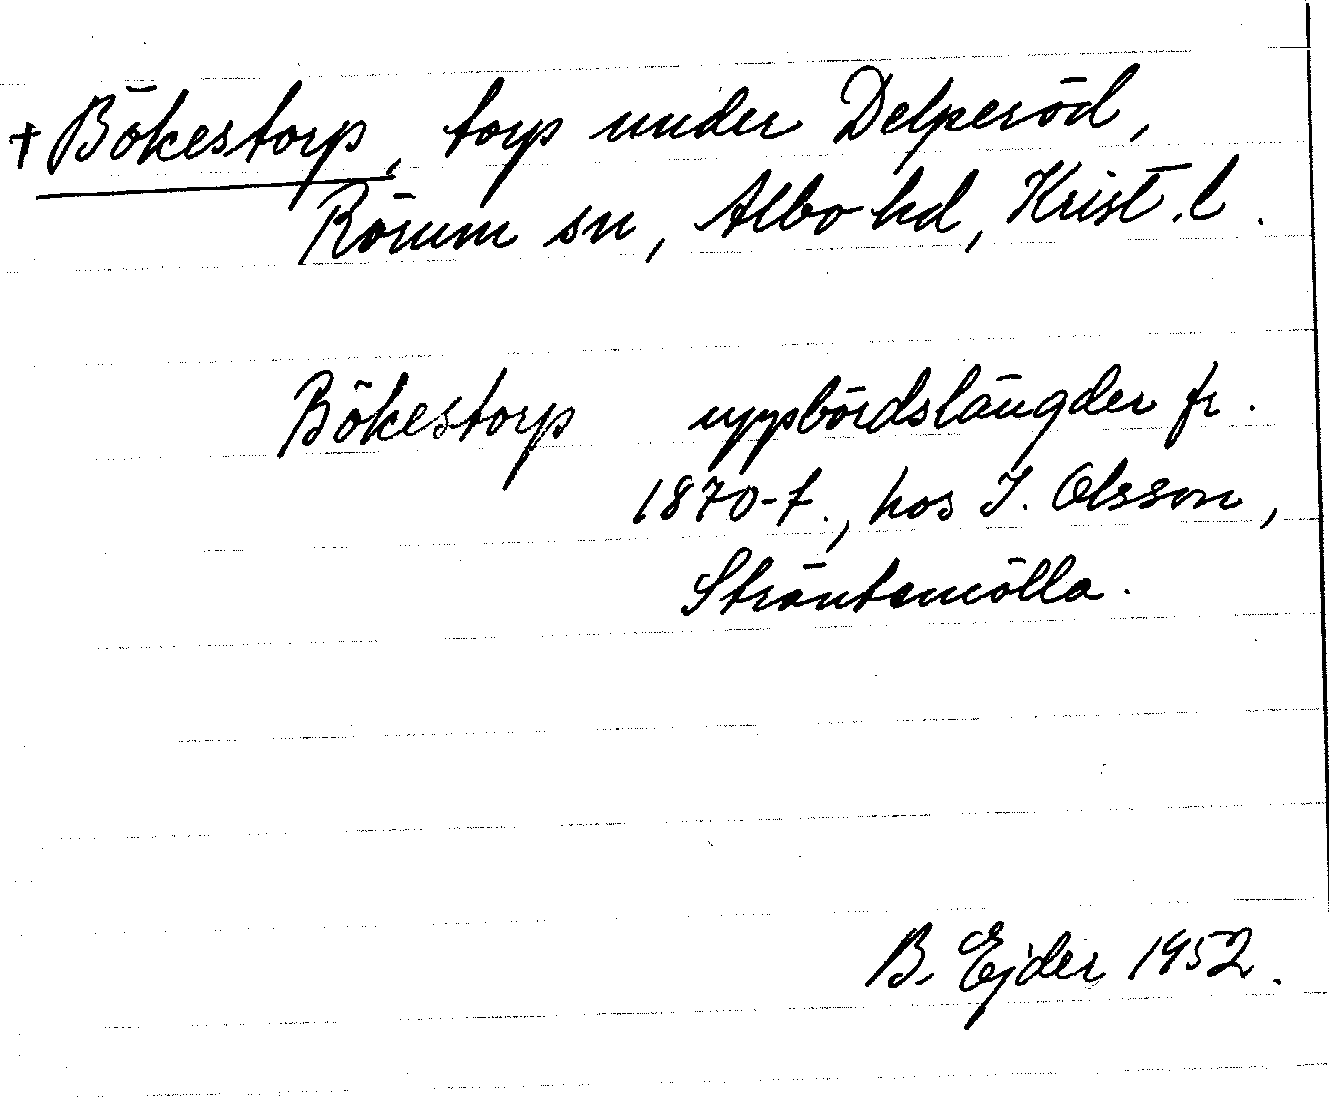 † Bökestorp, torp under Delperöd,
Rörum sn, Albo hd, Krist. l.
Bökestorp uppbördslängder fr.
1870-t., hos I. Olsson,
Sträntemölla.
B. Ejder 1952.